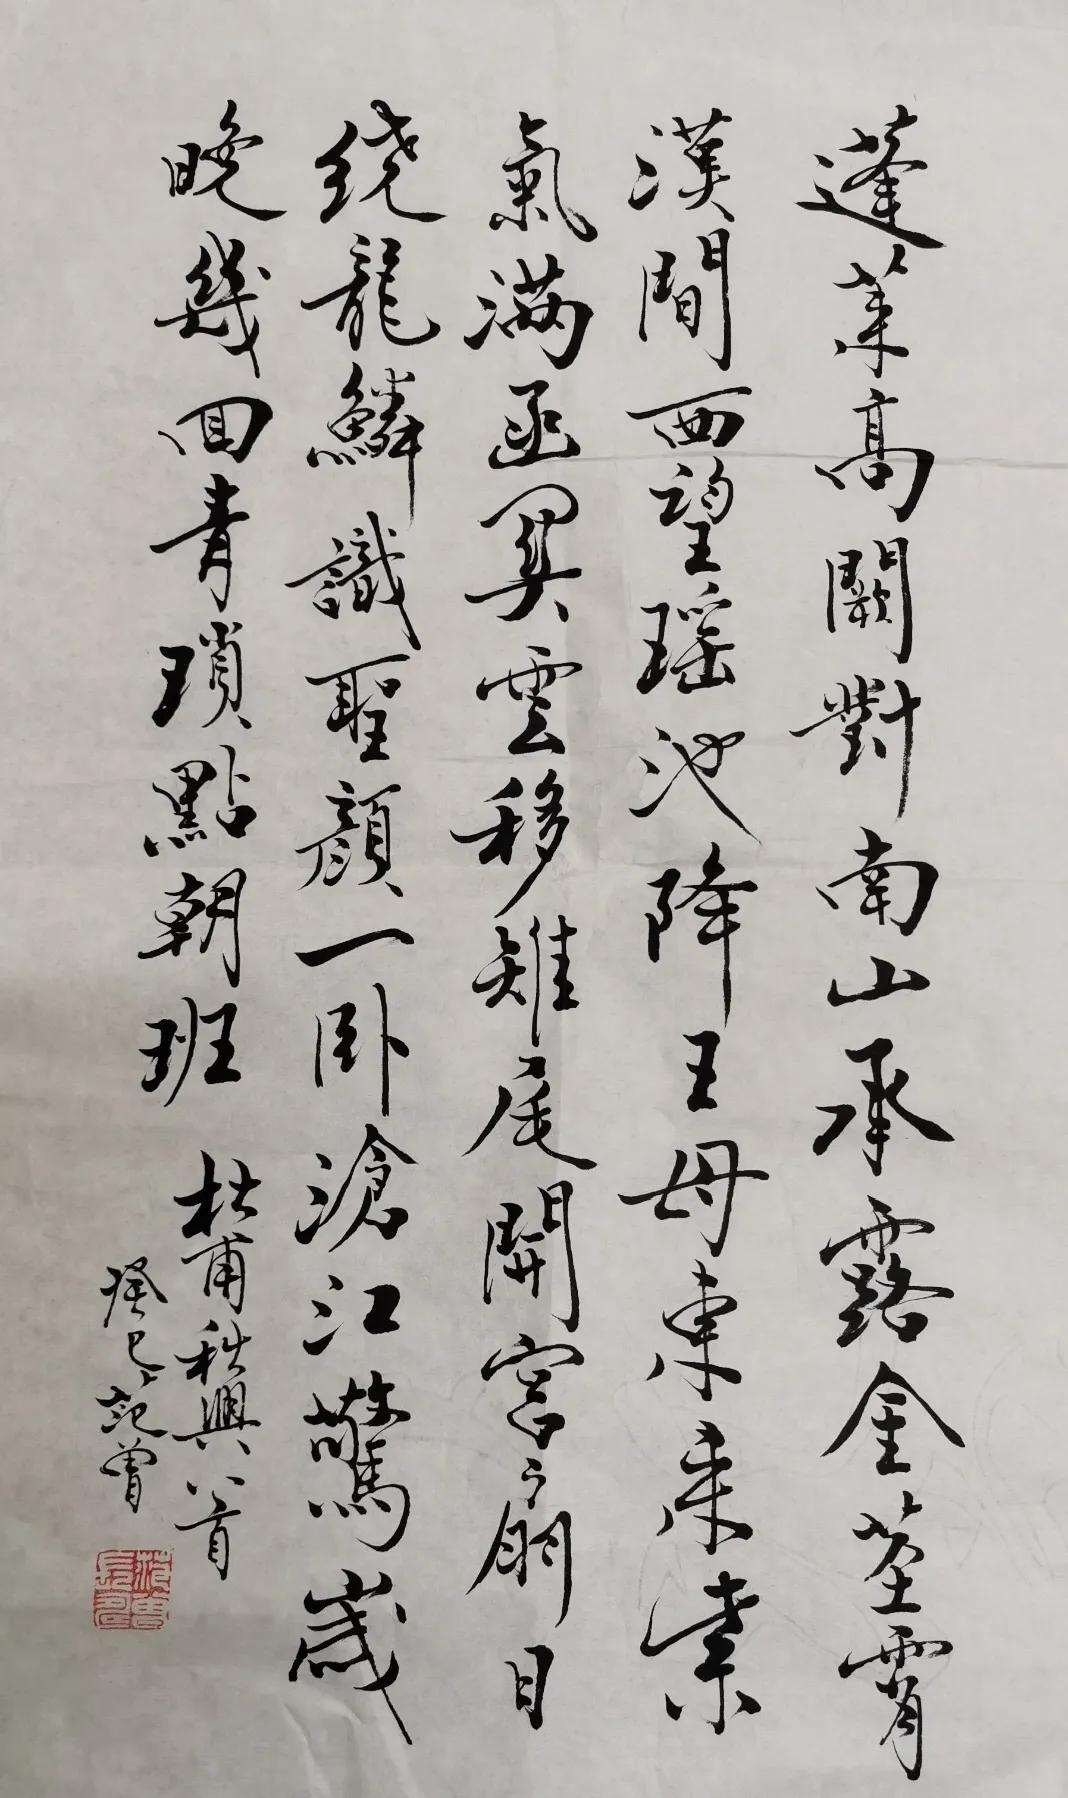 蓬莱高闕對南山承露金莖霄
漢間西望瑶池降王母東来紫
氣滿函関雲移雉尾開宮扇日
繞龍鱗識聖顔一卧滄江驚歲
晚幾回青瑣點朝班
杜甫秋興八首
癸巳范曾